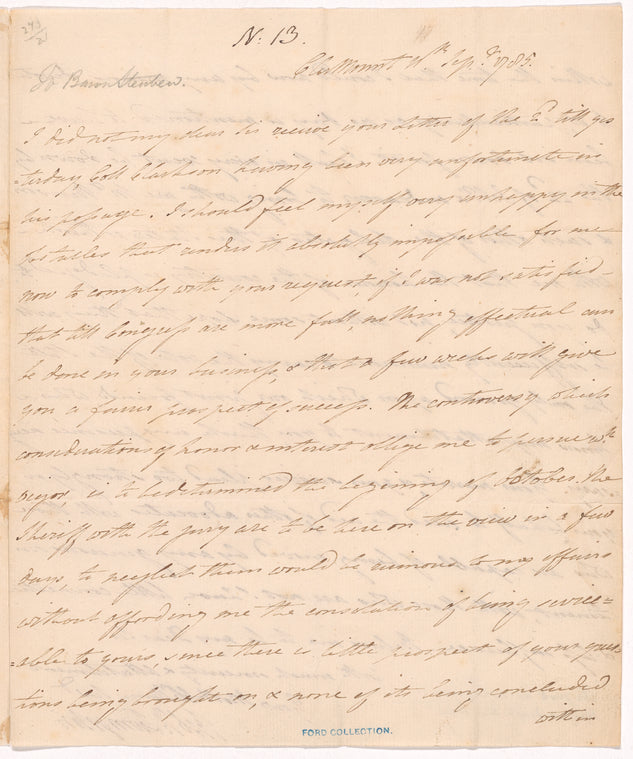 243/2
N: 13.
Cler Mount 11th Sepr. 1785.
To Baron Steuben.
I did not my dear Sir receive your Letter of the 2d till yes
=terday, Coll Clarkson having been very unfortunate in
his passage. I should feel myself very unhappy in the
that renders it absolutely impossible for me
now to comply with your request, if I was not satisfied
that till Congress are more full, nothing effectual can
be done in your business, & that a few weeks will give
you a fairer prospect of success. The controversy which
considerations of honor & interest oblige me to persue wth
vigor, is to be determined the begining of October. The
Sheriff with the jury are to be here on the view in a few
days, to neglect them would be ruinous to my affairs
without affording me the consolation of being service=
=able to yours, since there is little prospect of your ques
tions being brought on, & none of its being concluded
within
FORD COLLECTION.